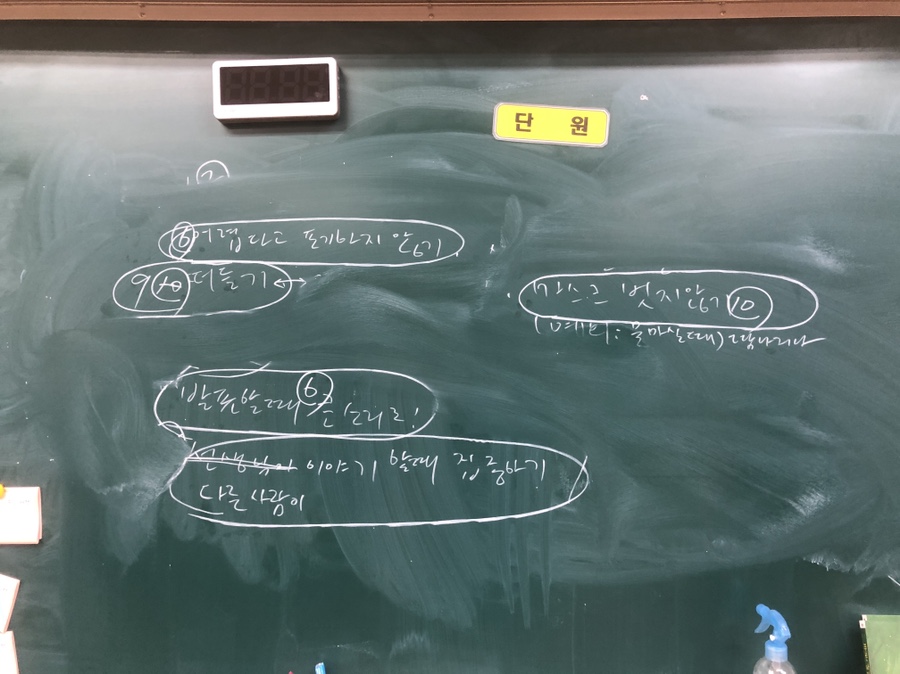 단 원
7
6 어렵다고 포기하지 않기
9 10 떠들기 ↔
마스크 벗지않기 10
(예외: 물마실때)
발표할때 6 큰소리로!
선생님이 이야기 할때 집중하기
다른 사람이